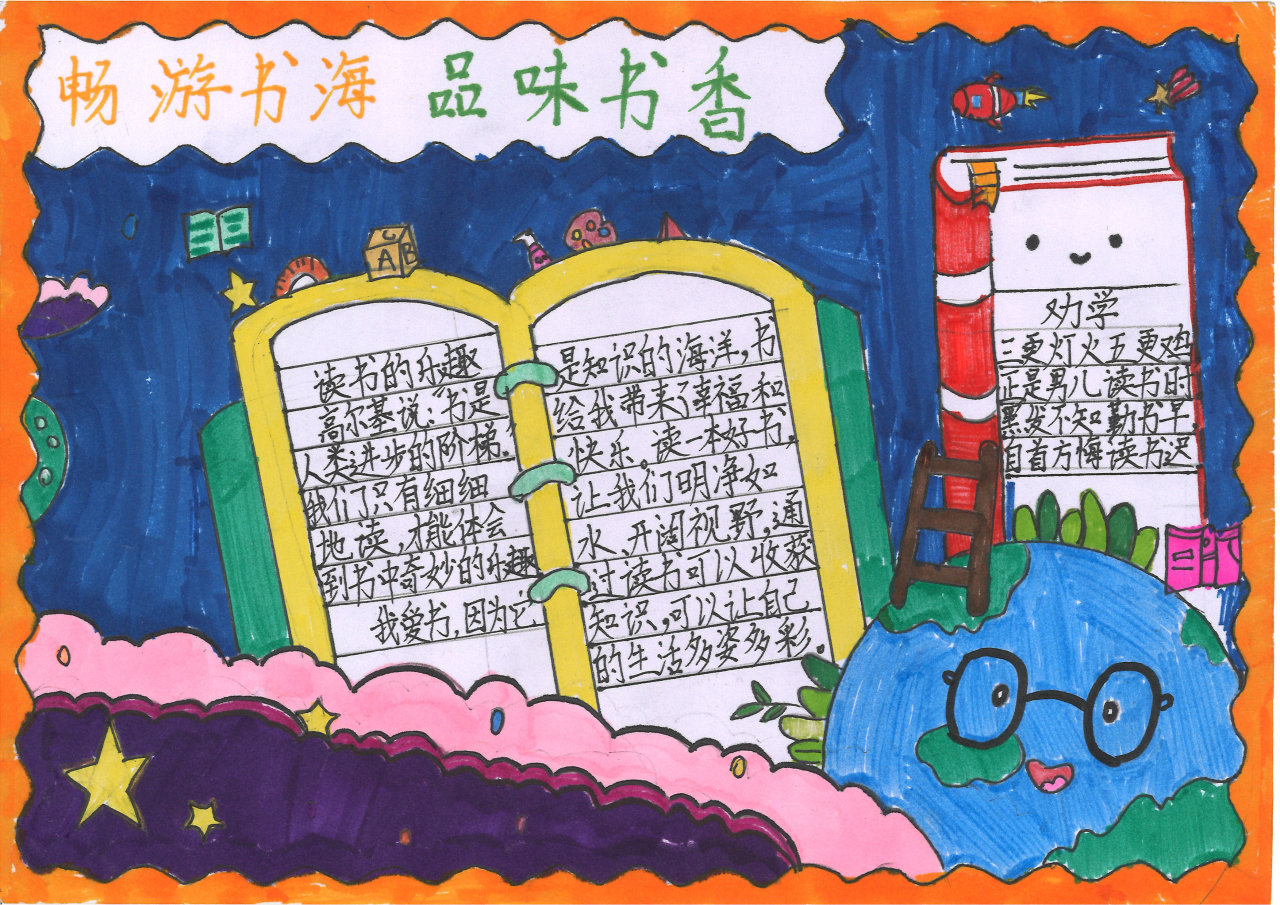 畅游书海 品味书香
C
A B
读书的乐趣
高尔基说:“书是
人类进步的阶梯。”
我们只有细细
地读,才能体会
到书中奇妙的乐趣
我爱书,因为它
是知识的海洋,书
给我带来了幸福和
快乐。读一本好书,
让我们明净如
水、开阔视野,通
过读书可以收获
知识,可以让自己
的生活多姿多彩。
劝学
三更灯火五更鸡
正是男儿读书时
黑发不知勤书早,
白首方悔读书迟